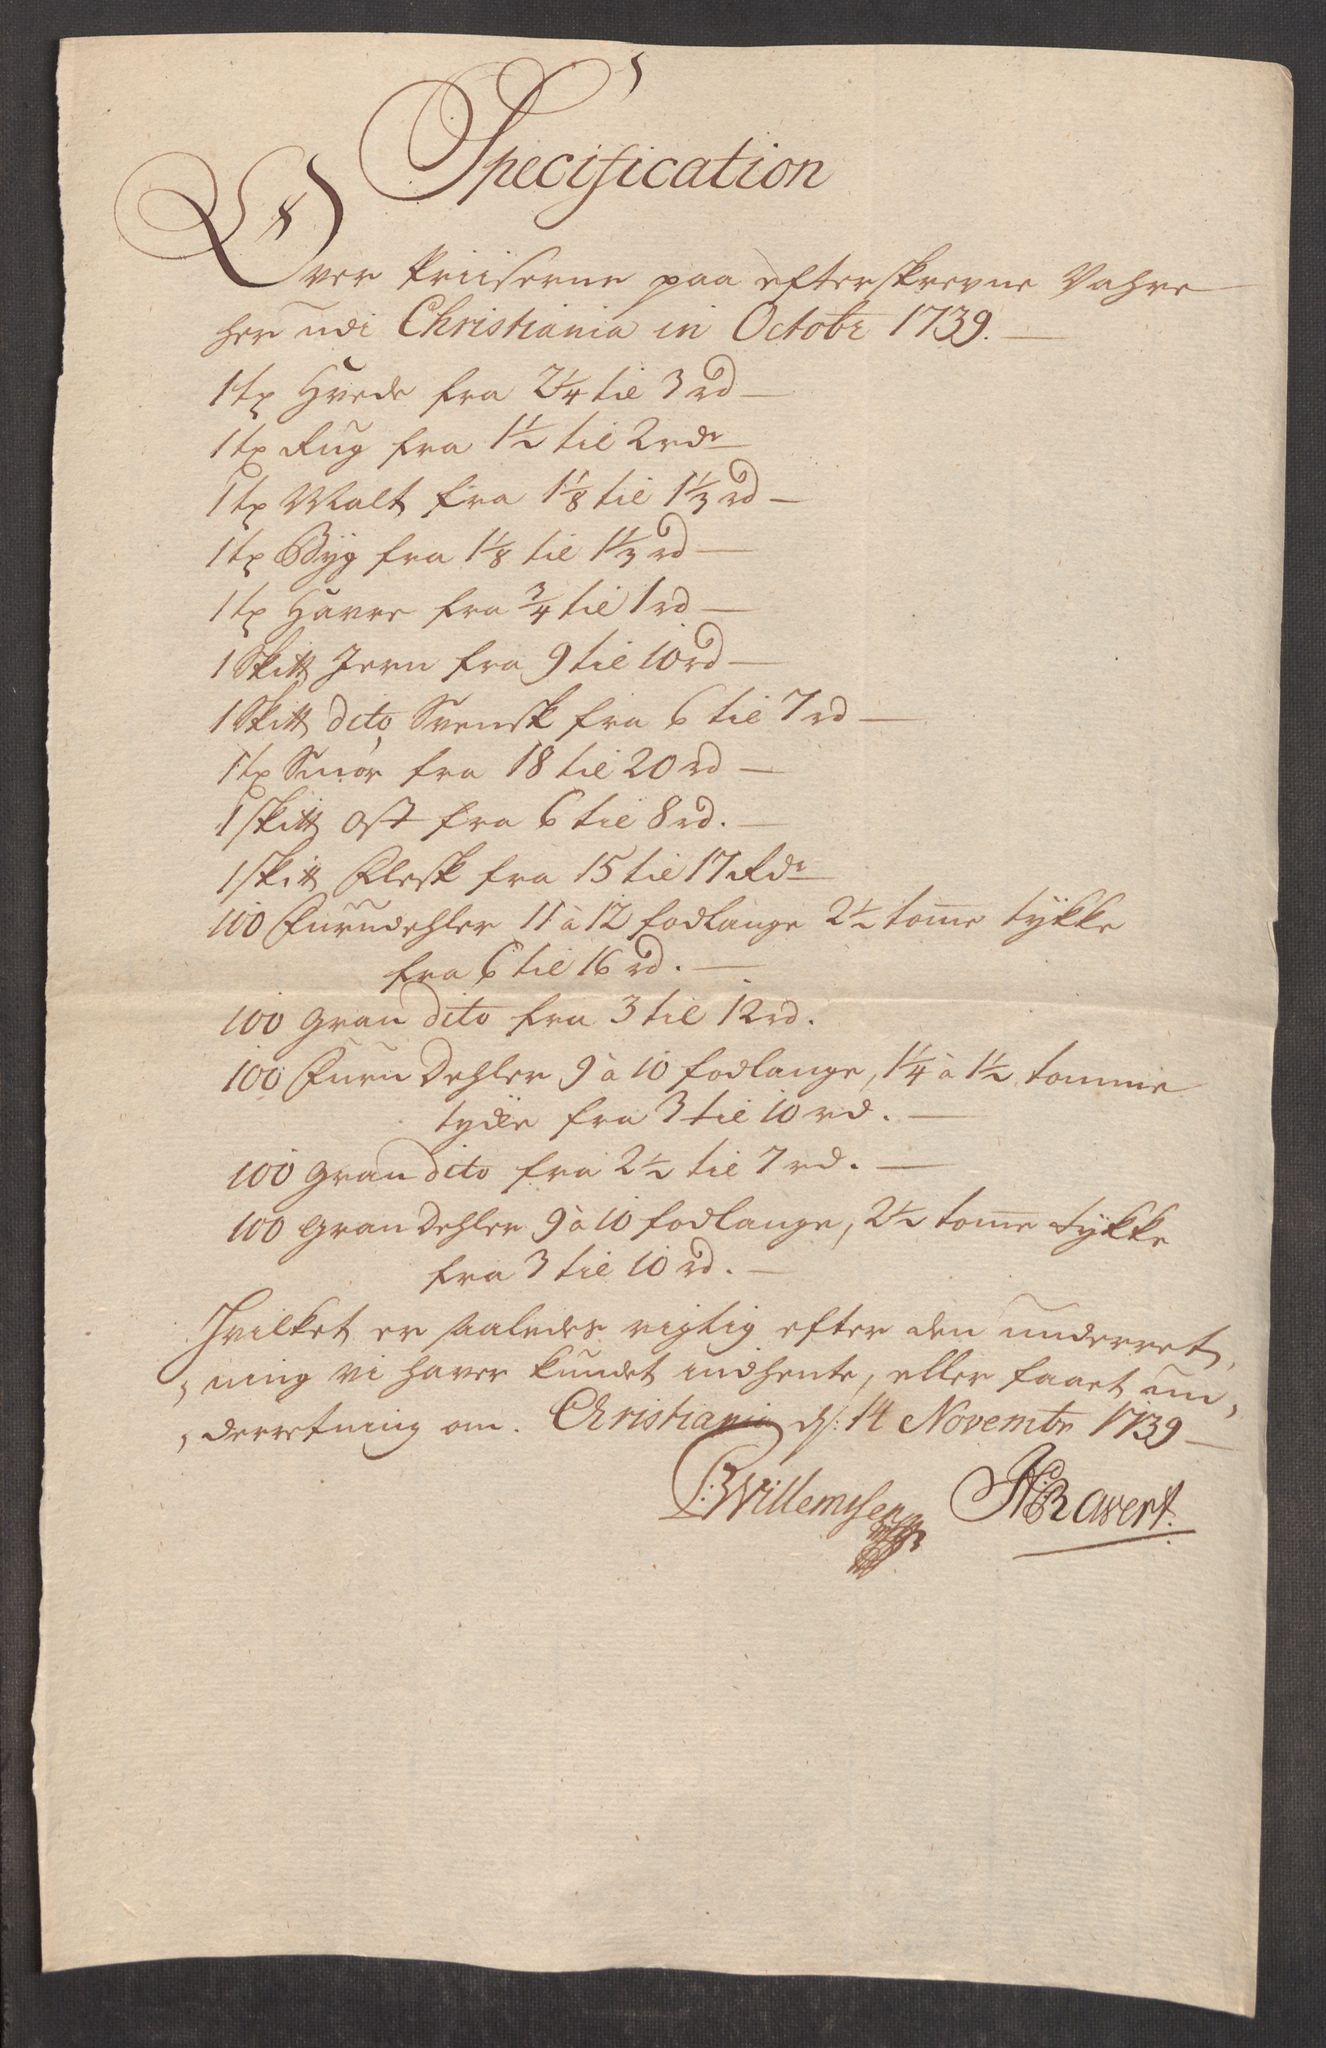 Specification
Over Priiserne paa efterskrevne Vahre
her udi Christiania in Octobr 1739.
1 tø Hvede fra 2¼ til 3 rd
1 tø Rug fra 1½ til 2 rdr
1 tø Malt fra 1⅛ til 1⅓ rd
1 tø Byg fra 1⅛ til 1⅓ rd
1 tø Havre fra ¾ til 1 rd
1 Skitt Jern fra 9 til 10 rd
1 Skitt dito Svensk fra 6 til 7 rd
1 tø Smør fra 18 til 20 rd
1 skitt Ost fra 6 til 8 rd.
1 skitt Flesk fra 15 til 17 Rdr
100 Furudehler 11 à 12 fodlange 2½ tome tykke
fra 6 til 16 rd.
100 gran dito fra 3 til 12 rd.
100 Furu Dehler 9 à 10 fodlange, 1¼ à 1½ tomme
tycke fra 3 til 10 rd.
100 gran dito fra 2½ til 7 rd.
100 gran Dehler 9 à 10 fodlange, 2½ tome tykke
fra 3 til 10 rd.
Hvilket er saaledes rigtig efter den underret,
,ning vi haver kundet indhente, eller faaet un,
,derretning om. Christiania d: 14 Novembr 1739
Willemsen Ravert.